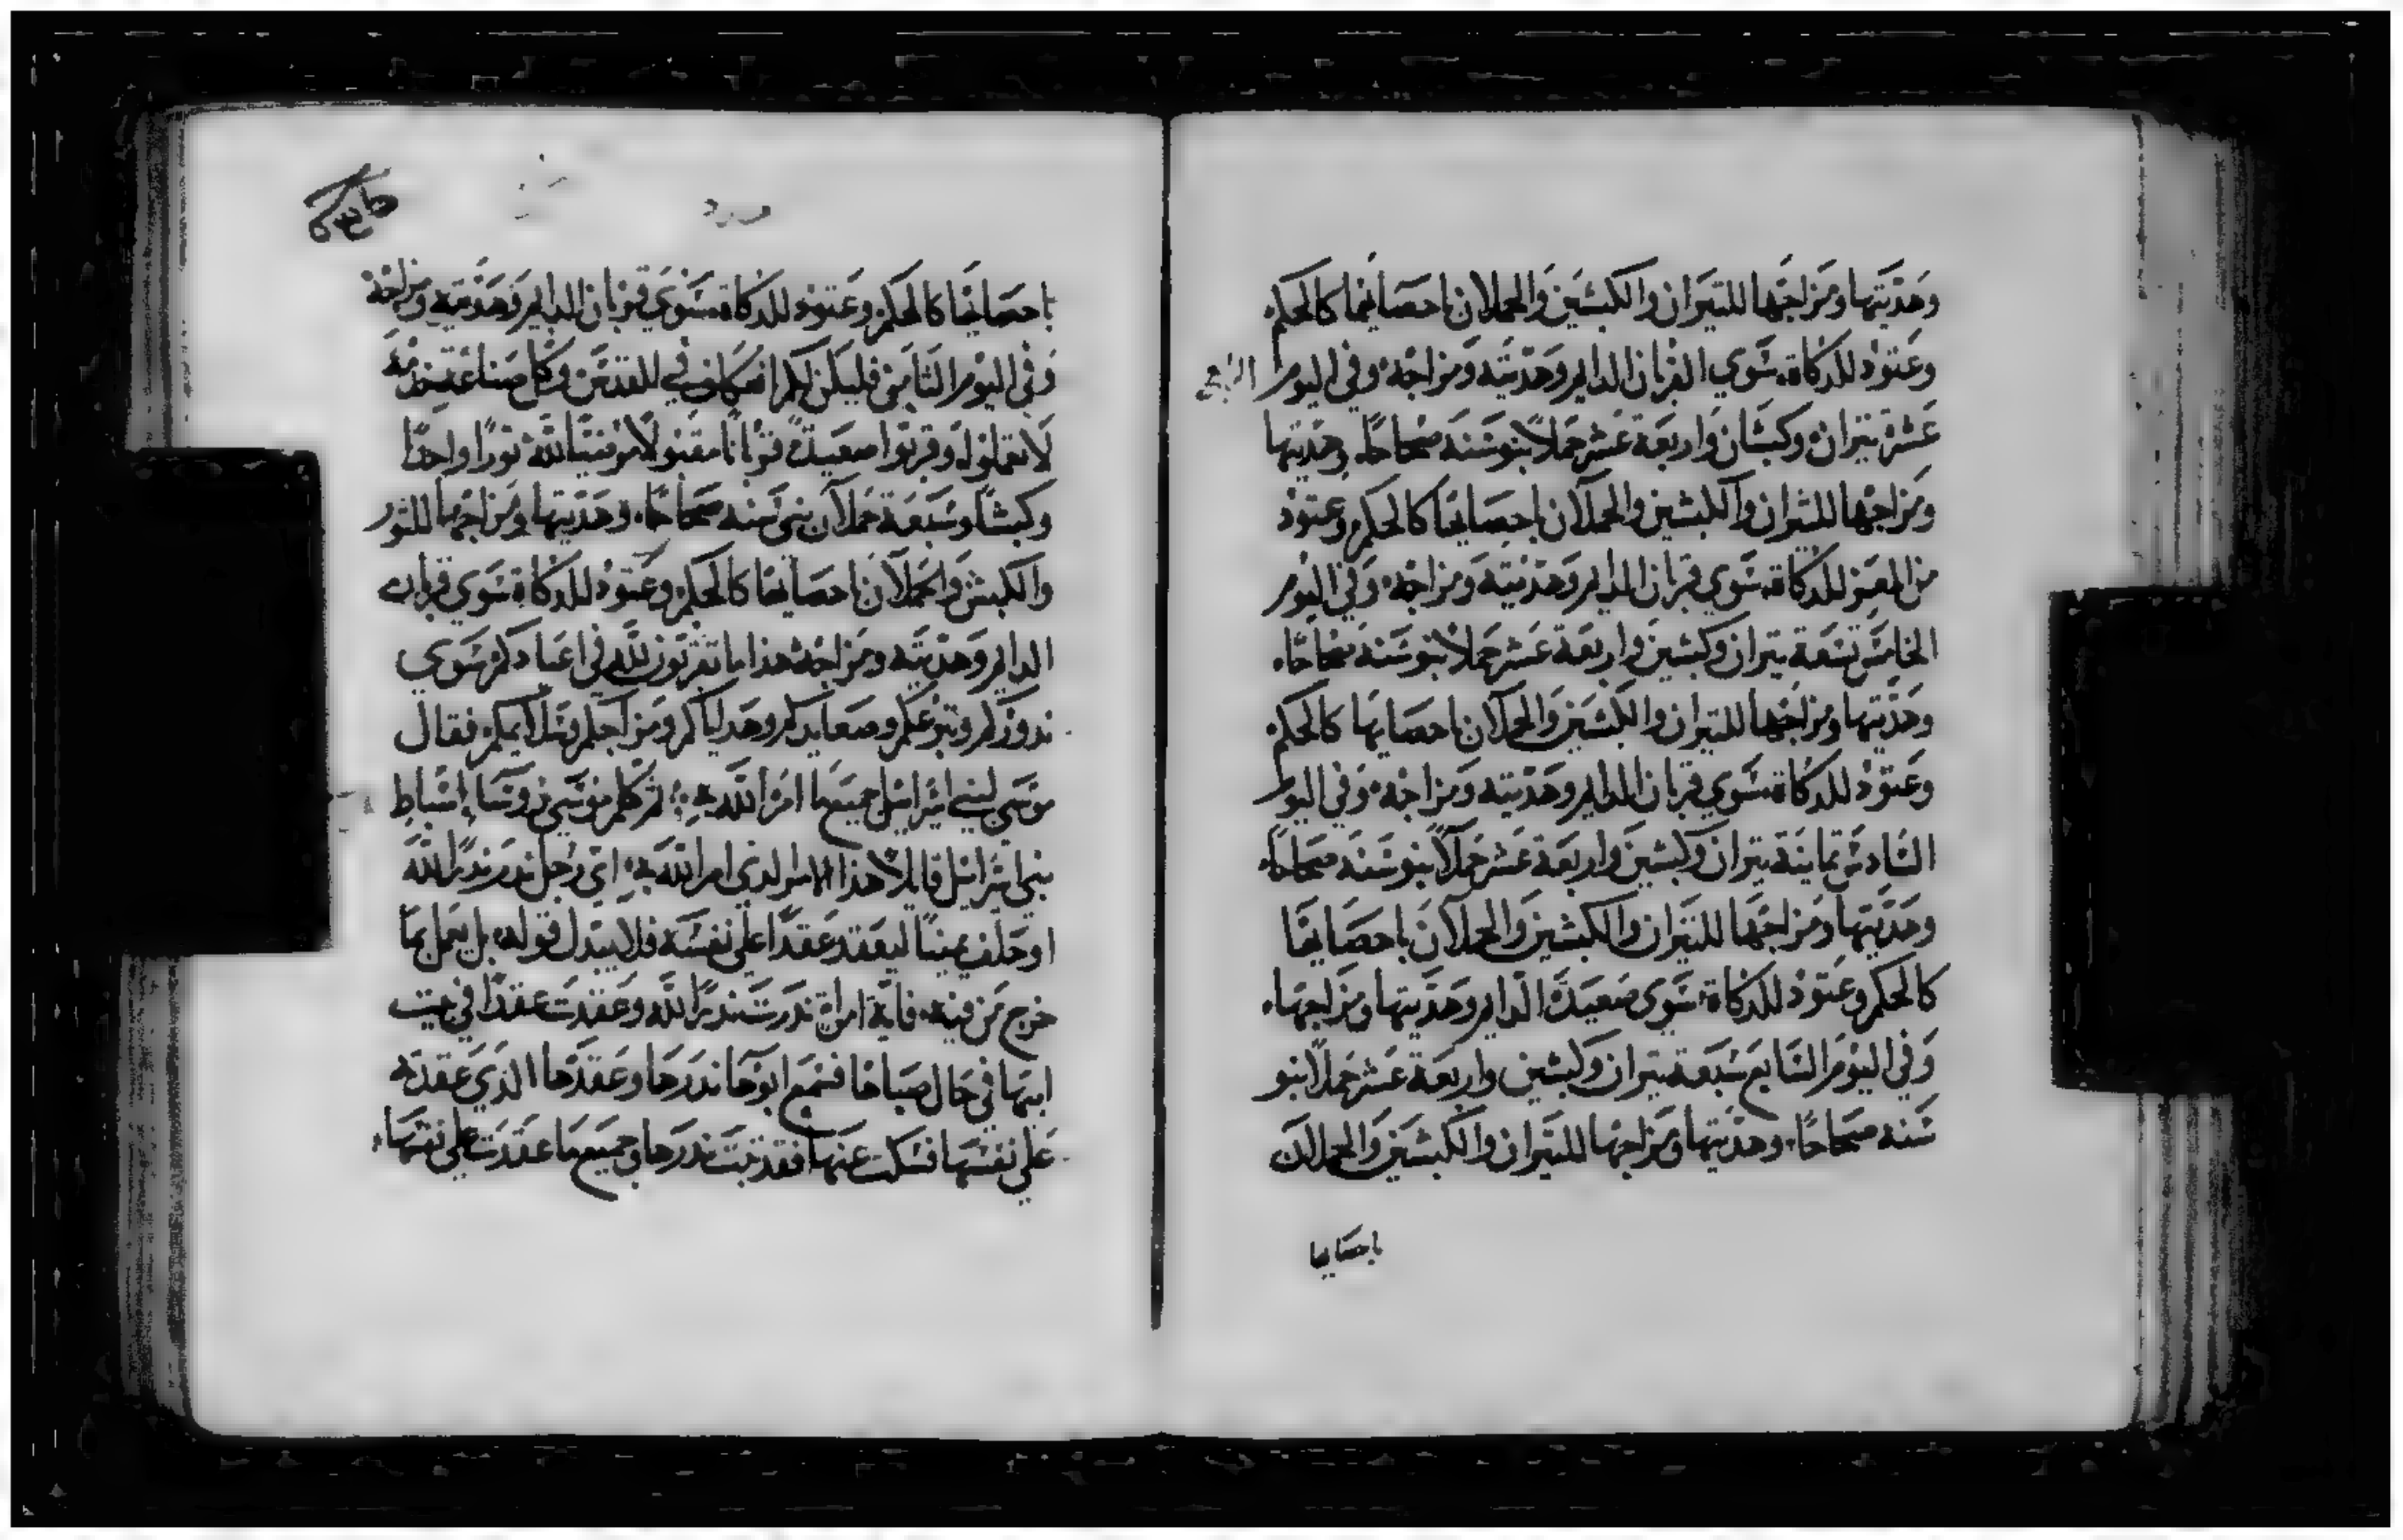 وهديتها ومزاجها للتيران والكبشين والحملان باحصايها كالحكم
وعتود للدكاة سوي القربان الدايم وهديته ومزاجه وفي اليوم الرابع
عشرة تيران وكبشان واربعة عشر حملاً بنو سنه صحاحا وهديتها
ومزاجها للتيران والكبشين والحملان باحصايها كالحكم وعتود
من المعز للدكاة سوي قربان الدايم وهديته ومزاجه وفي اليوم
الخامس تسعة تيران وكبشين واربعة عشر حملا بنو سنه صحاحا
وهديتها ومزاجها للتيران والكبشين والحملان باحصايها كالحكم
وعتود للدكاة سوي قربان الدايم وهديته ومزاجه وفي اليوم
السادس تماينة تيران وكبشين واربعة عشر حملاً بنو سنه صحاحا
وهديتها ومزاجها للتيران والكبشين والحملان باحصايها
كالحكم وعتود للدكاة سوي صعيدة الدايم وهديتها ومزاجها
وفي اليوم السابع سبعة تيران وكبشين واربعة عشر حملا بنو
سنه صحاحاً وهديتها ومزاجها للتيران والكبشين والحملان
باحصايها
باحصايها كالحكم وعتود للدكاة سوي قربان الدايم وهديته ومزاجه
وفي اليوم التامن فليكن لكم انعكاف في القدس وكل صناعة
لا تعملوا وقربوا صعيدة قرباناً مقبولا مرضيا لله تورًا واحدًا
وكبشًا وسبعة حملان بني سنه صحاحا وهديتها ومزاجها للتور
والكبش والحملان باحصايها كالحكم وعتود للدكاة سوي قربان
الدايم وهديته ومزاجه هذا ما تقربون لله في اعيادكم سوي
ندوركم وتبرعكم وصعايدكم وهداياكم ومزاجكم فقال
موسي لبني اسراييل جميع ما امر الله به تم كلم موسي روسا اسباط
بني اسراييل قايلاً هذا الامر الدي امر الله به اي رجل ندر ندرًا لله
او حلف يمينًا ليعقد عقدًا علي نفسه فلا يبدل قوله بل يعمل بما
خرج من فيه فاية امراة ندرت ندرًا لله وعقدت عقدًا في بيت
ابيها في حال صباها فسمع ابوها ندرها وعقدها الذي عقدته
علي نفسها فسكت عنها فقد تبت ندرها وجميع ما عقدت علي نفسها